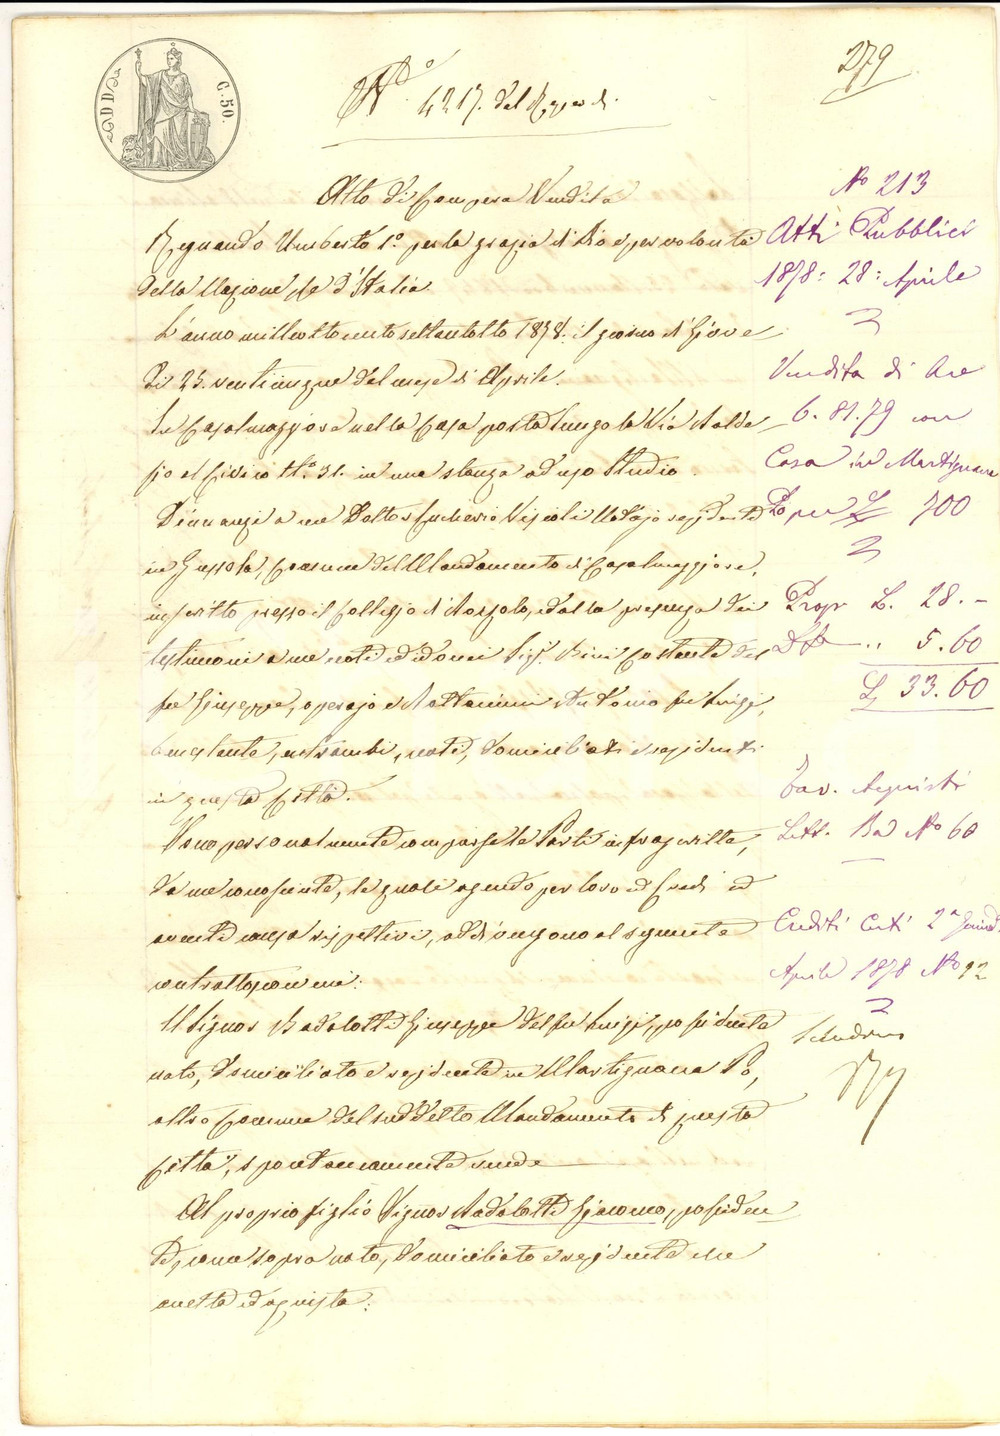 279
N.º 4217. del Rep
Atto di Compera Vendita
Regnando Umberto 1º. per la grazia di Dio e per volontà
della Nazione Re d'Italia
L'anno milleottocento settantotto 1878. il giorno di Giove
dì 25. venticinque del mese di Aprile.
In Casalmaggiore nella Casa posta lungo la Via Balde
sio al Civico N.º 31. in una stanza ad uso Studio.
Dinnanzi a me Dottor Notajo residente
in Gussola, Comune del Mandamento di Casalmaggiore,
inscritto presso il Collegio di Bozzolo, ed alla presenza dei
testimoni a me noti ed idonei Sigr. Bini Costante del
fu Giuseppe, operajo e Antonio fu Luigi,
benestante, entrambi, nati, domiciliati e residenti
in questa Città.
Sono personalmente comparse le Parti infrascritte,
da me conosciute, le quali agendo per loro ed Eredi ed
aventi causa rispettivi, addivengono al seguente
contratto, come:
Il Signor Badalotti Giuseppe del fu Luigi, possidente
nato, domiciliato e residente in Martignana Po,
altro Comune del suddetto Mandamento di questa
Città, spontaneamente vende
Al proprio figlio Signor Badalotti Giacomo, possiden
te, come sopra nato, domiciliato e residente che
accetta ed acquista:
Nº 213
Atti Pubblici
1878: 28: Aprile
Vendita di Are
6. 81. 79 con
Casa in Martignana
Po per L. 700
Propr L. 28. -
5. 60
L. 33. 60
Tav. Acquisti
Lett. Ba Nº 60
Crediti Certi 2ª
Aprile 1878 Nº 92
C. 50.